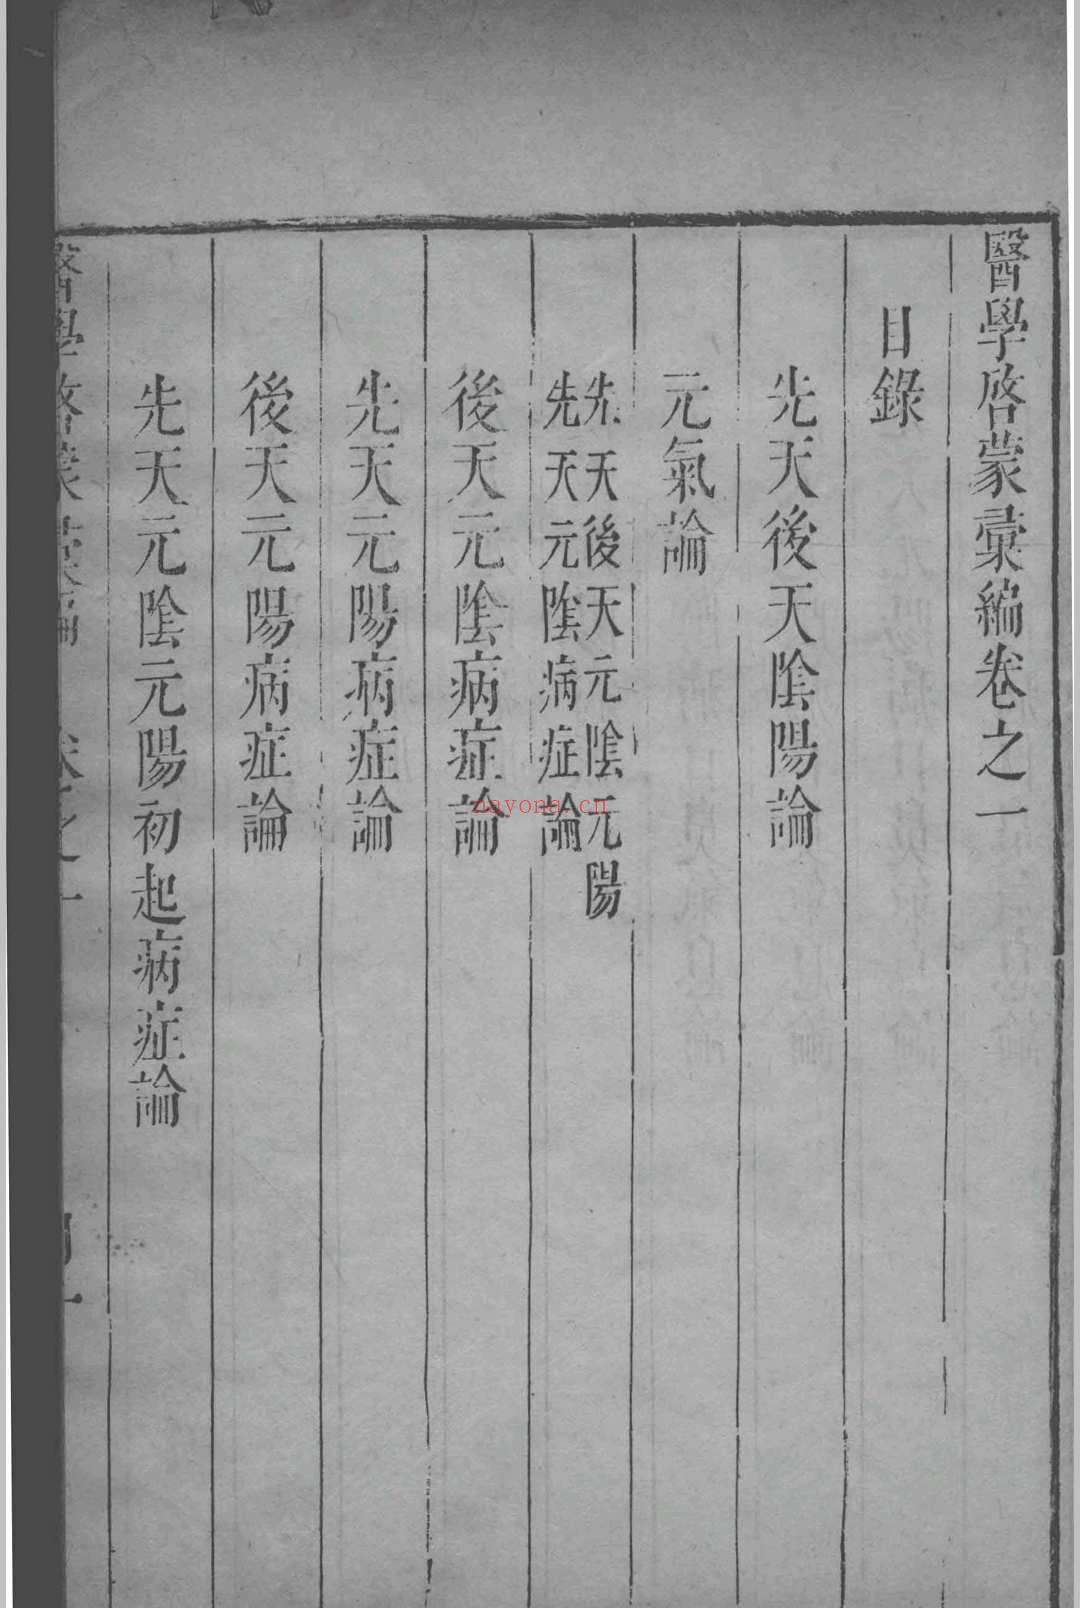 醫學啓蒙彙編卷之一
目錄
先天後天陰陽論
元氣論
先天後天元陰元陽
先天元陰病症論
後天元陰病症論
先天元陽病症論
後天元陽病症論
先天元陰元陽初起病症論
醫學啓蒙彙編
卷之一
nayona.cn